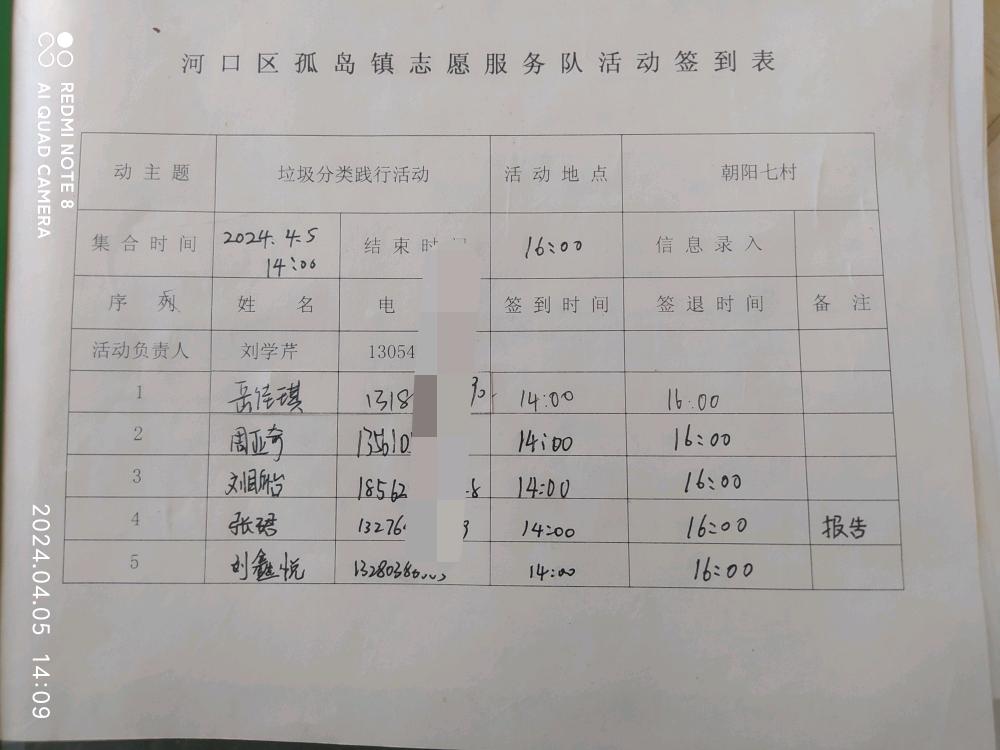 河口区孤岛镇志愿服务队活动签到表
动主题 垃圾分类践行活动 活动地点 朝阳七村
集合时间 2024.4.5 14:00 结束时 16:00 信息录入
序列 姓名 电 签到时间 签退时间 备注
活动负责人 刘学芹 13054
1 岳佳琪 1318 14:00 16:00
2 周亚奇 13561 14:00 16:00
3 刘 18562 8 14:00 16:00
4 张珺 13276 14:00 16:00 报告
5 刘鑫悦 1328038 14:00 16:00
REDMI NOTE 8
AI QUAD CAMERA
2024.04.05 14:09